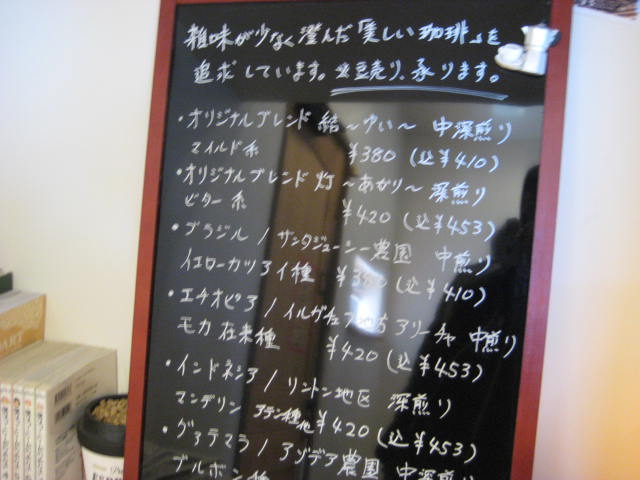 雑味が少なく澄んだ「美しい珈琲」を
追求しています。※豆売り、承ります。
・オリジナルブレンド 結〜ゆい〜 中深煎り
マイルド系 ¥380 (込¥410)
・オリジナルブレンド 灯〜あかり〜 深煎り
ビター系 ¥420 (込¥453)
・ブラジル/サンタジューシー農園 中煎り
イエローカツアイ種 ¥380 (込¥410)
・エチオピア/イルガチェフ地方 アリーチャ 中煎り
モカ在来種 ¥420 (込¥453)
・インドネシア/リントン地区 深煎り
マンデリン アテン種他 ¥420 (込¥453)
・グァテマラ/アゾテア農園 中深煎り
ブルボン種